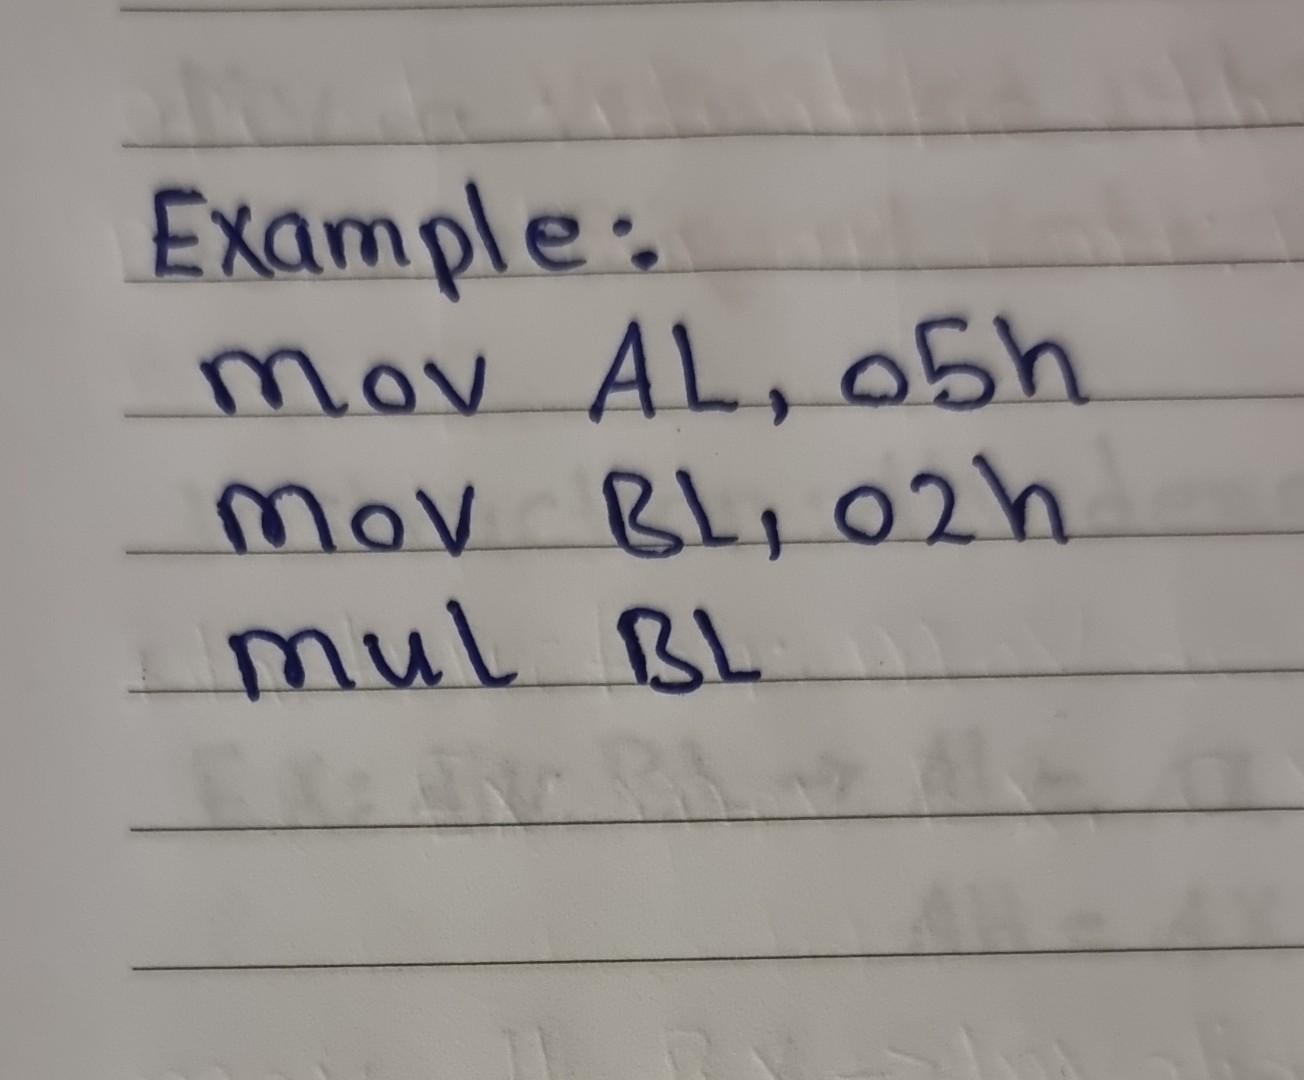 Example:
mov AL, 05h
mov BL, 02h
mul BL